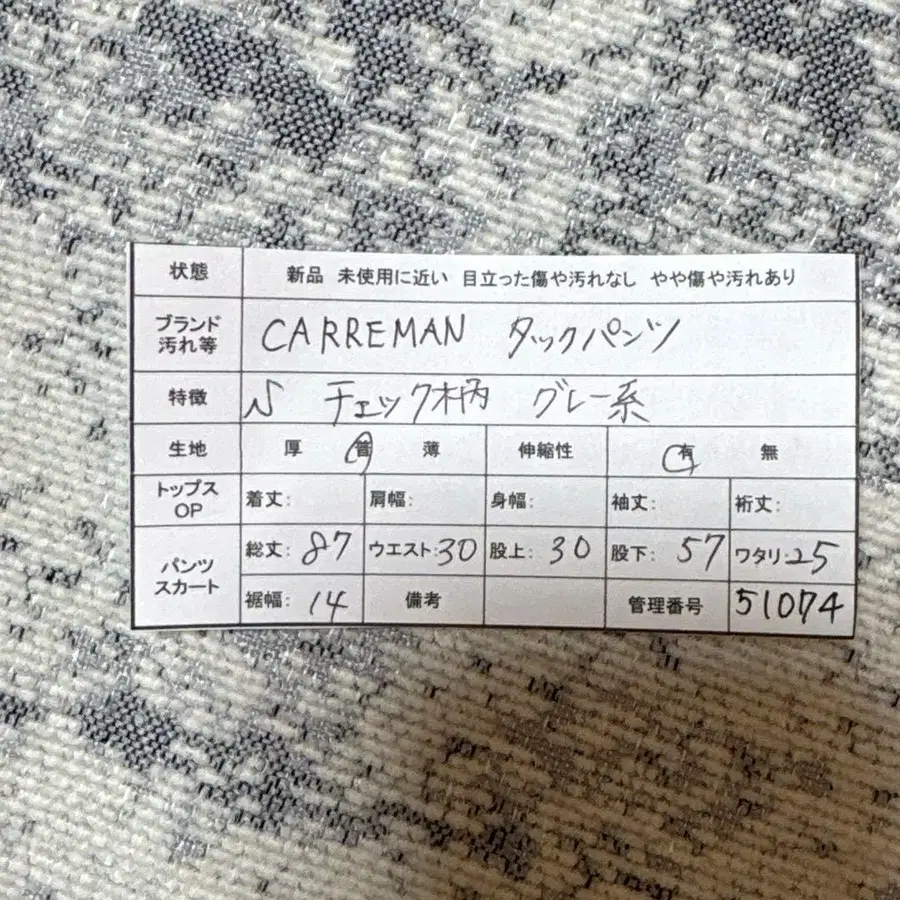 状態 新品 未使用に近い 目立った傷や汚れなし やや傷や汚れあり
ブランド 汚れ等 CARREMAN タックパンツ
特徴 S チェック柄 グレー系
生地 厚 普 薄 伸縮性 有 無
トップス OP 着丈: 肩幅: 身幅: 袖丈: 裄丈:
パンツ スカート 総丈: 87 ウエスト: 30 股上: 30 股下: 57 ワタリ: 25
裾幅: 14 備考 管理番号 51074